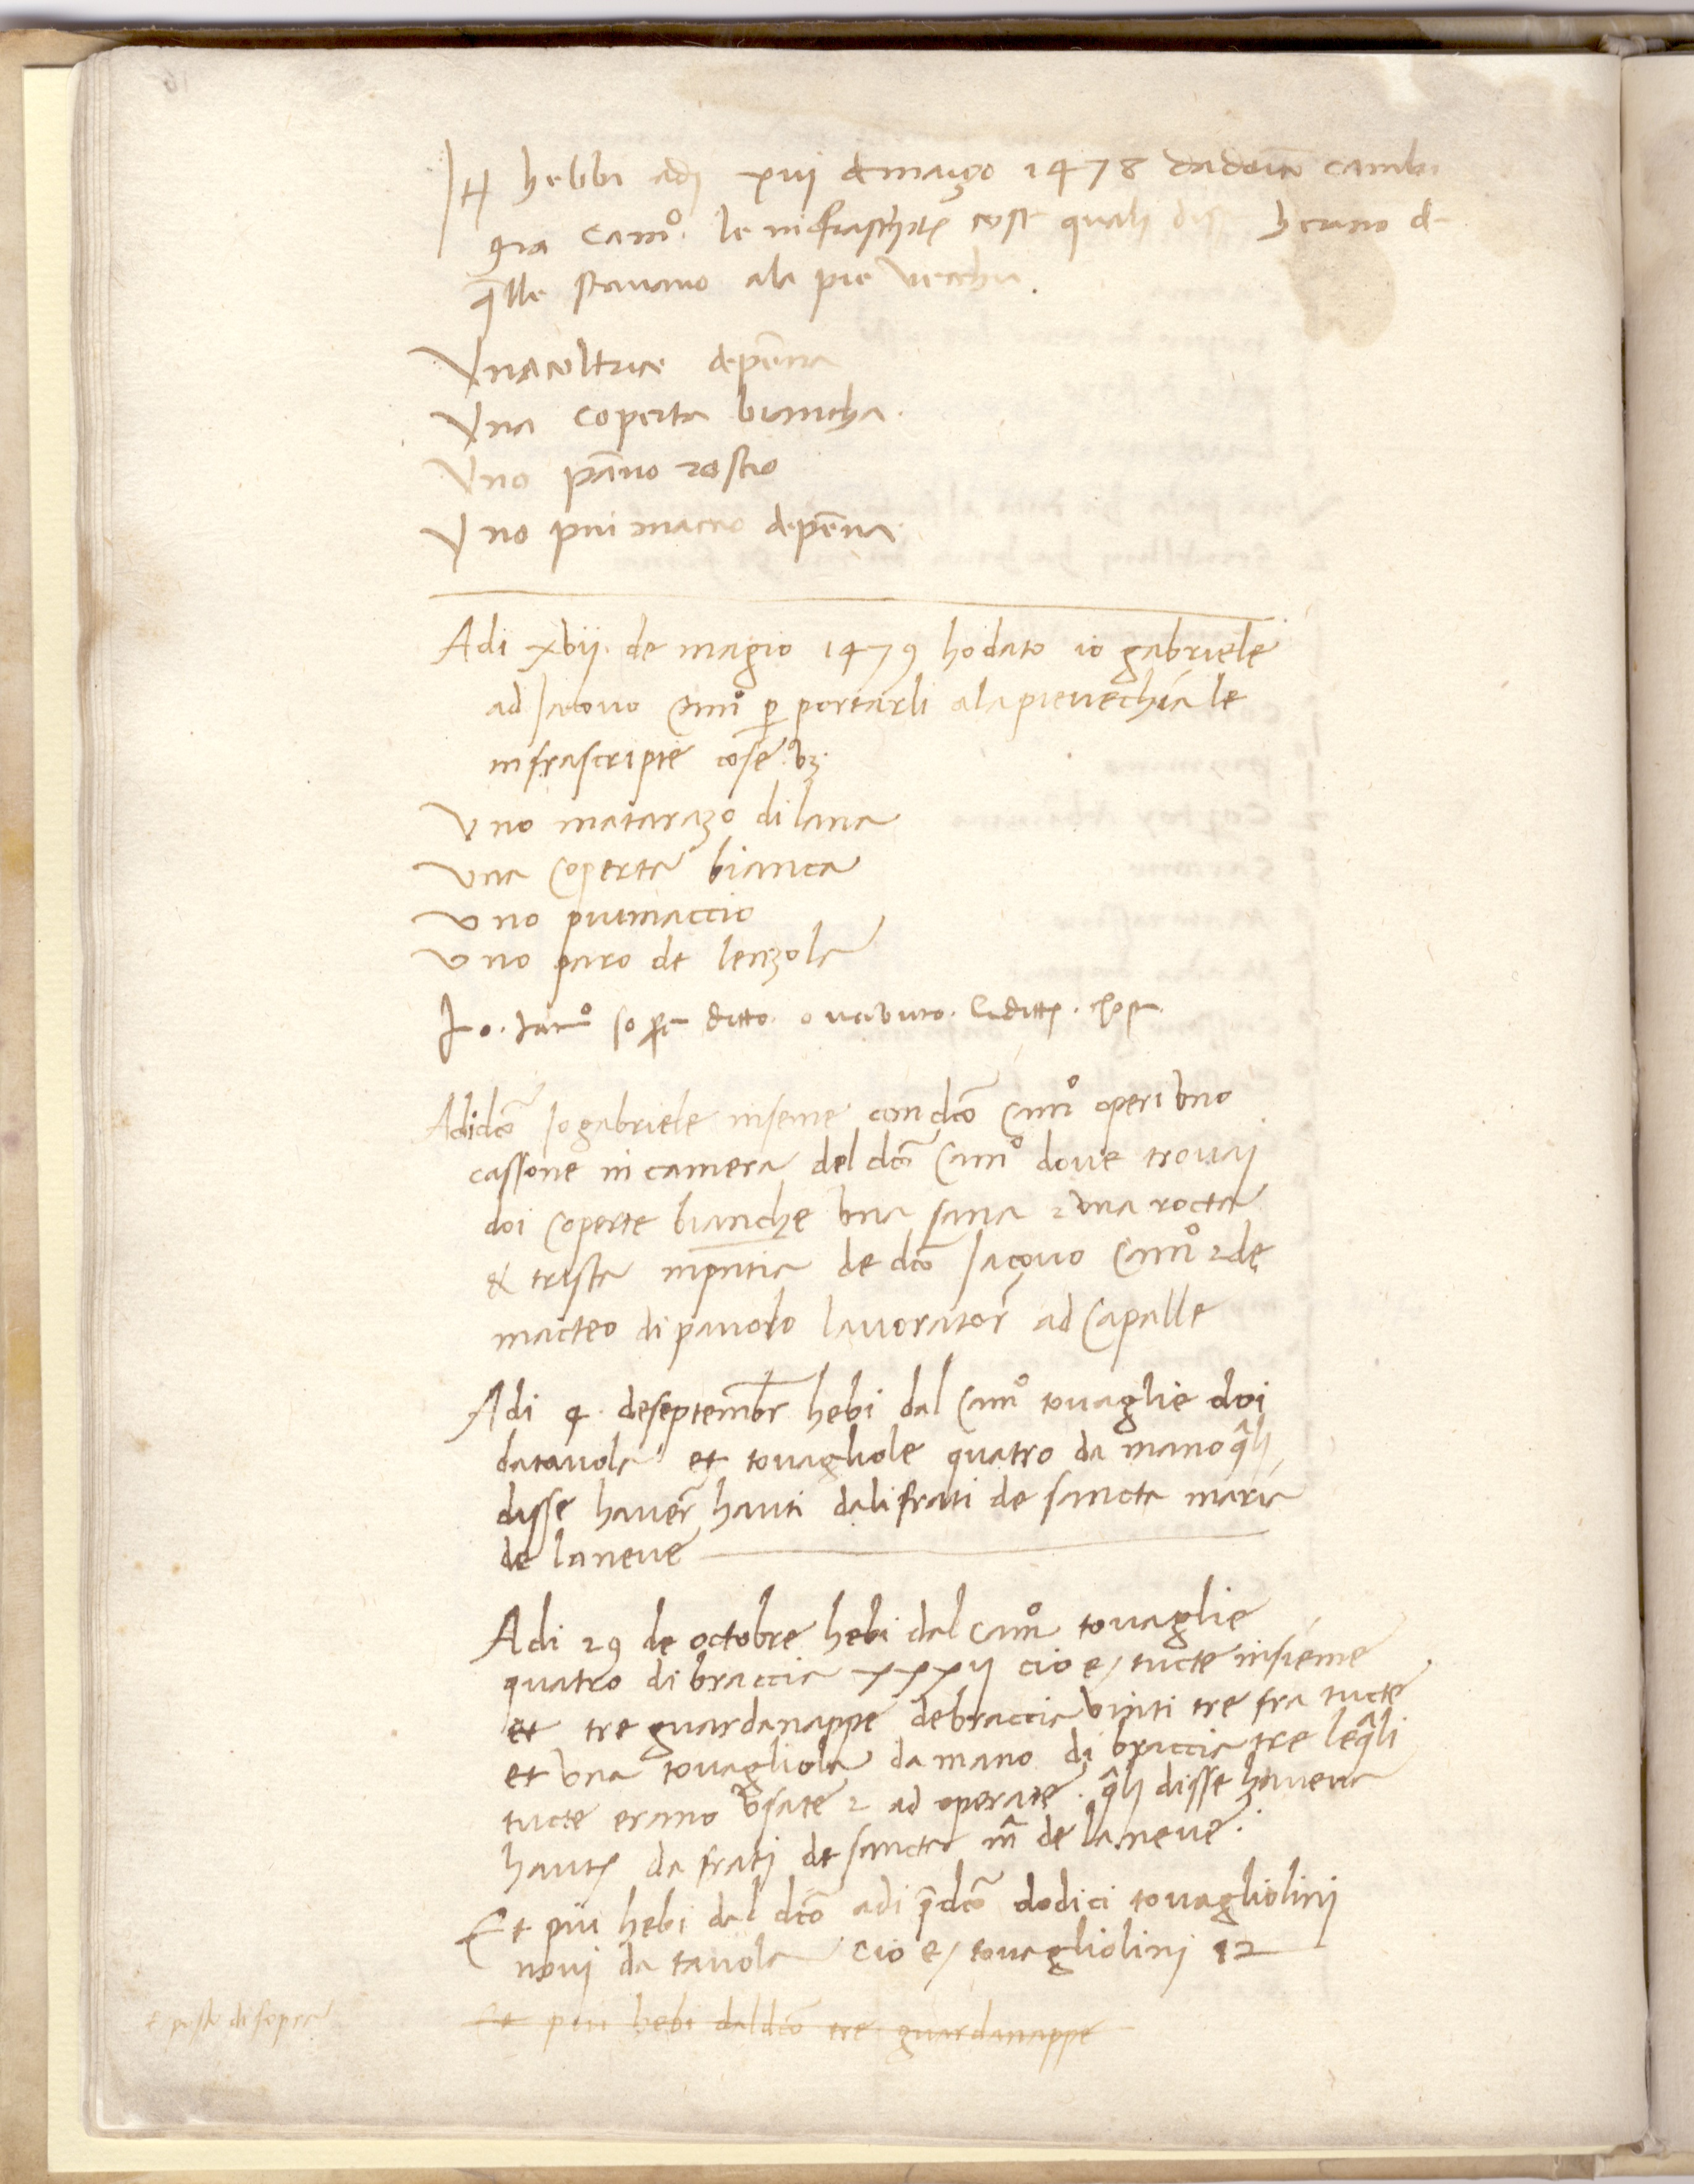 It hebbi adi xvij de março 1478 da doña
Cam͞o. le infrascripte cose quali herano de
q͞lle stavano ala pie vecchia.
Una coltrice de pe͞na
Una coperta biancha.
Uno pa͞no rosso
Uno piumaccio de pe͞na.
Adi xvij. de magio 1479 ho dato io gabriele
ad Jacovo Cam͞o p portarli ala pieve chia le
infrascripte cose vz.
Uno matarazo di lana
Una Coperta bianca
Uno piumaccio
Uno paro de lenzola
Io. Jac͞o so pra ditto. o ricivuto. le ditte. chose.
Adi dc͞o Io gabriele inseme con dc͞o Cam͞o operi uno
cassone in camera del dc͞o Cam͞o dove trovaj
doi Coperte bianche una sana 2 una rocta
& trista in pn͞tia de dc͞o Jacovo Cam͞o 2 de
macteo di pavolo lavorator ad Capalle
Adi 4. de septembr hebi dal Cam͞o tovaglie doi
da tavola et tovagliole quatro da mano q͞lj
disse haver havti dali frati de sancta maria
de la neve
Adi 29 de octobre hebi dal Cam͞o tovaglie
quatro di braccia xxxij cio e/ tucte insieme
et tre guardanappe de braccia vinti tre fra tucte
et una tovagliola da mano di braccia tre leq͞li
tucte erano usate 2 ad operate. q͞lj disse haveva
havte da fratj de sancta m͞a de la neve.
Et piu hebi dal dc͞o adi p͞dc͞o dodici tovagliolinj
novj da tavola cio e/ tovagliolinj 12
e posto di sopra
Et piu hebi dal dc͞o tre guardanappe